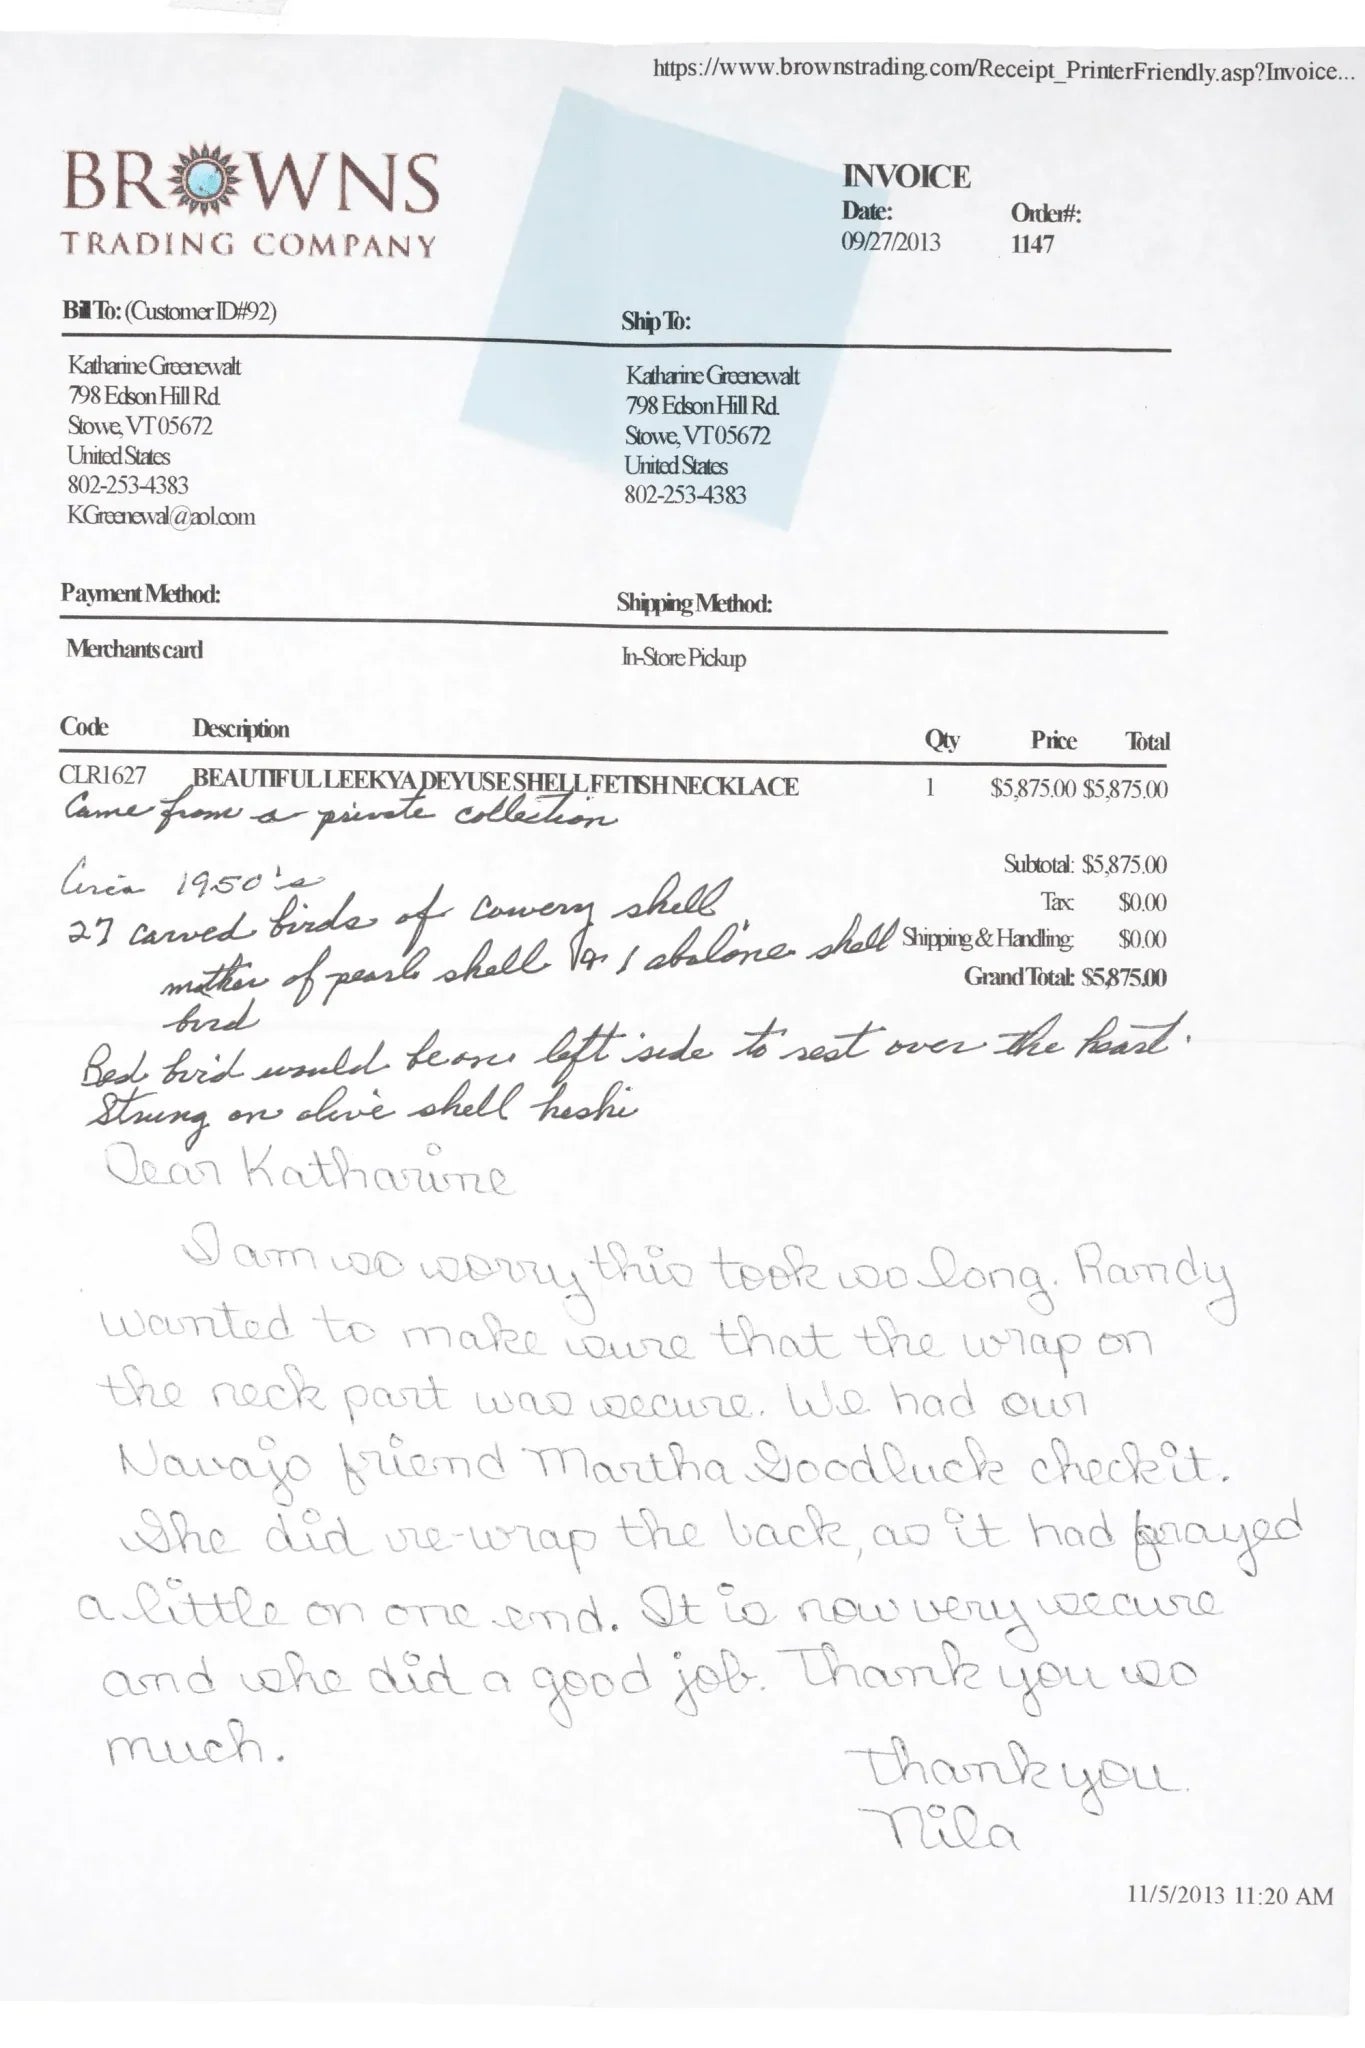 https://www.brownstrading.com/Receipt_PrinterFriendly.asp?Invoice...
BROWNS
TRADING COMPANY
INVOICE
Date: Order#:
09/27/2013 1147
Bill To: (Customer ID#92) Ship To:
Katharine Greenewalt Katharine Greenewalt
798 Edson Hill Rd. 798 Edson Hill Rd.
Stowe, VT 05672 Stowe, VT 05672
United States United States
802-253-4383 802-253-4383
KGreenewal@aol.com
Payment Method: Shipping Method:
Merchants card In-Store Pickup
Code Description Qty Price Total
CLR1627 BEAUTIFUL LEEKYA DEYUSE SHELL FETISH NECKLACE 1 $5,875.00 $5,875.00
Came from a private collection
Subtotal: $5,875.00
Circa 1950's
Tax: $0.00
27 carved birds of cowery shell
Shipping & Handling: $0.00
mother of pearl shell & 1 abalone shell
Grand Total: $5,875.00
bird
Red bird would be on left side to rest over the heart.
Strung on olive shell heshi
Dear Katharine
I am so sorry this took so long. Randy
wanted to make sure that the wrap on
the neck part was secure. We had our
Navajo friend Martha Goodluck check it.
She did re-wrap the back, as it had frayed
a little on one end. It is now very secure
and she did a good job. Thank you so
much.
Thank you.
Nila
11/5/2013 11:20 AM